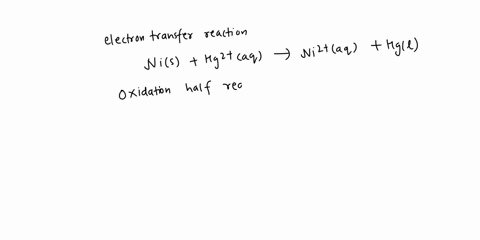 electron transfer reaction
Ni(s) + Hg²⁺(aq) → Ni²⁺(aq) + Hg(l)
Oxidation half rec